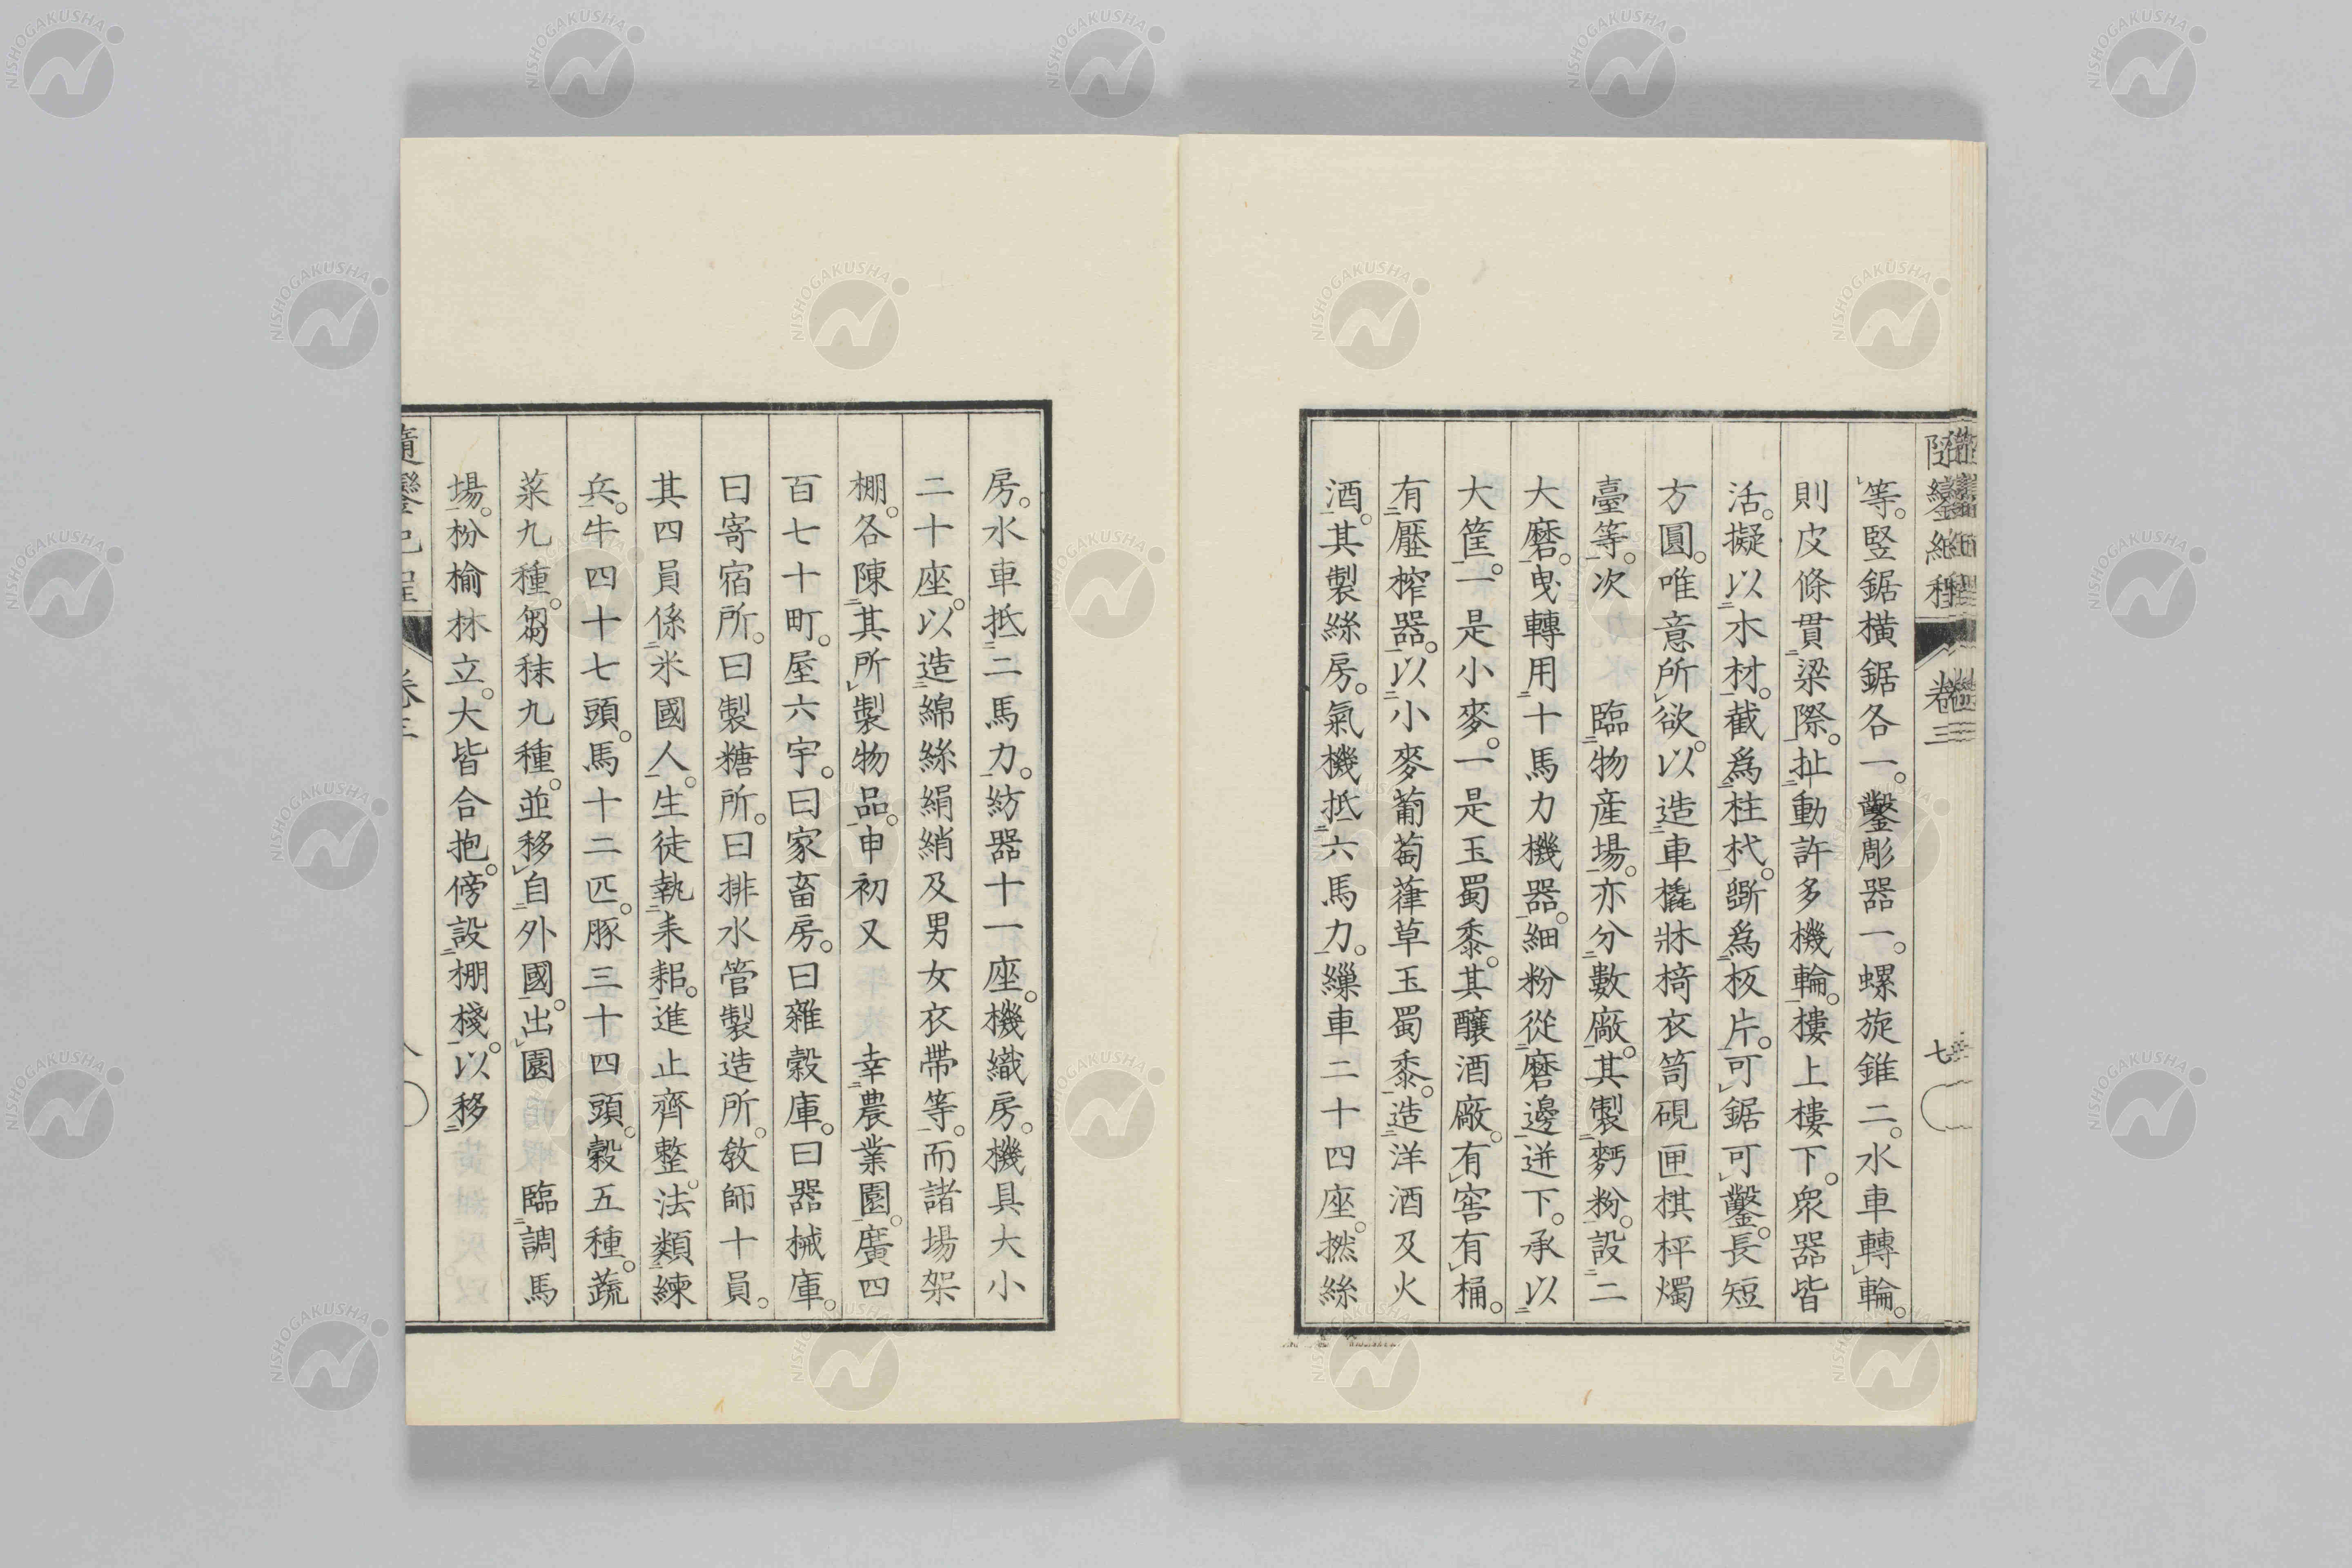 隨鑾紀程 卷三 七
等。竪鋸橫鋸各一。鑿彫器一。螺旋錐二。水車轉輪。
則皮條貫梁際。扯動許多機輪。樓上樓下。衆器皆
活。擬以木材。截爲柱杙。斲爲板片。可鋸可鑿。長短
方圓。唯意所欲。以造車橇牀椅衣笥硯匣棋枰燭
臺等。次 臨物産場。亦分數廠。其製麪粉。設二
大磨。曳轉用十馬力機器。細粉從磨邊迸下。承以
大筐。一是小麥。一是玉蜀黍。其釀酒廠。有窖有桶。
有壓榨器。以小麥葡萄葎草玉蜀黍。造洋酒及火
酒。其製絲房。氣機抵六馬力。繅車二十四座。撚絲
房。水車抵二馬力。紡器十一座。機織房。機具大小
二十座。以造綿絲絹綃及男女衣帶等。而諸場架
棚。各陳其所製物品。申初又 幸農業園。廣四
百七十町。屋六宇。曰家畜房。曰雜穀庫。曰器械庫。
曰寄宿所。曰製糖所。曰排水管製造所。敎師十員。
其四員係米國人。生徒執耒耜。進止齊整。法類練
兵。牛四十七頭。馬十二匹。豚三十四頭。穀五種。蔬
菜九種。芻秣九種。並移自外國。出園 臨調馬
場。枌楡林立。大皆合抱。傍設棚棧。以移
隨鑾紀程 卷三 八
NISHOGAKUSHA